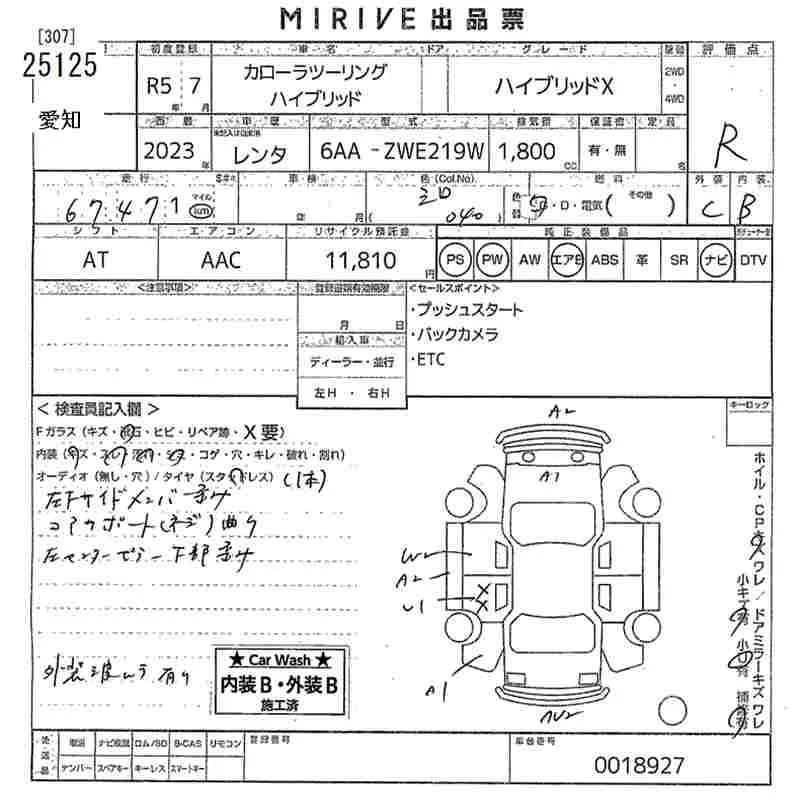 MIRIVE 出品票
[307]
25125
愛知
初度登録 車名 ドア グレード 駆動 評価点
R5 7
年 月
カローラツーリング
ハイブリッド
ハイブリッドX
2WD
・
4WD
R
西暦 車歴 型式 排気量 保証書 定員
2023 年
レンタ
6AA -ZWE219W
1,800 CC
有・無
名
走行 車検 色(Col.No.) 燃料 外装 内装
67471
マイル
km
年 月
シロ
(040)
色替
・ロ・電気(その他 )
C B
シフト エアコン リサイクル預託金 純正装備品
AT AAC 11,810 円
PS PW AW エアB ABS 革 SR ナビ DTV
<注意事項>
登録書類有効期限
月 日
輸入車
ディーラー・並行
左H ・ 右H
<セールスポイント>
・プッシュスタート
・バックカメラ
・ETC
キーロック
< 検査員記入欄 >
Fガラス(キズ・飛石・ヒビ・リペア跡・X要)
・コゲ・穴・キレ・破れ・割れ)
オーディオ(無し・穴)/タイヤ(スタッドレス) (1本)
左Fサイドメンバー曲り
コアサポート(ネジ)曲り
左センターピラー下部曲り
外装波いう有り
★ Car Wash ★
内装B・外装B
施工済
A2
A1
W2
A2
U1
X
X
A1
AU2
ホイル・CPキズワレ/ドアミラーキズワレ
小キズ有 小凹有 補修有
後送品
取説 ナビ取説 ロム/SD B-CAS リモコン
ナンバー スペアキー キーレス スマートキー
登録番号
車台番号
0018927